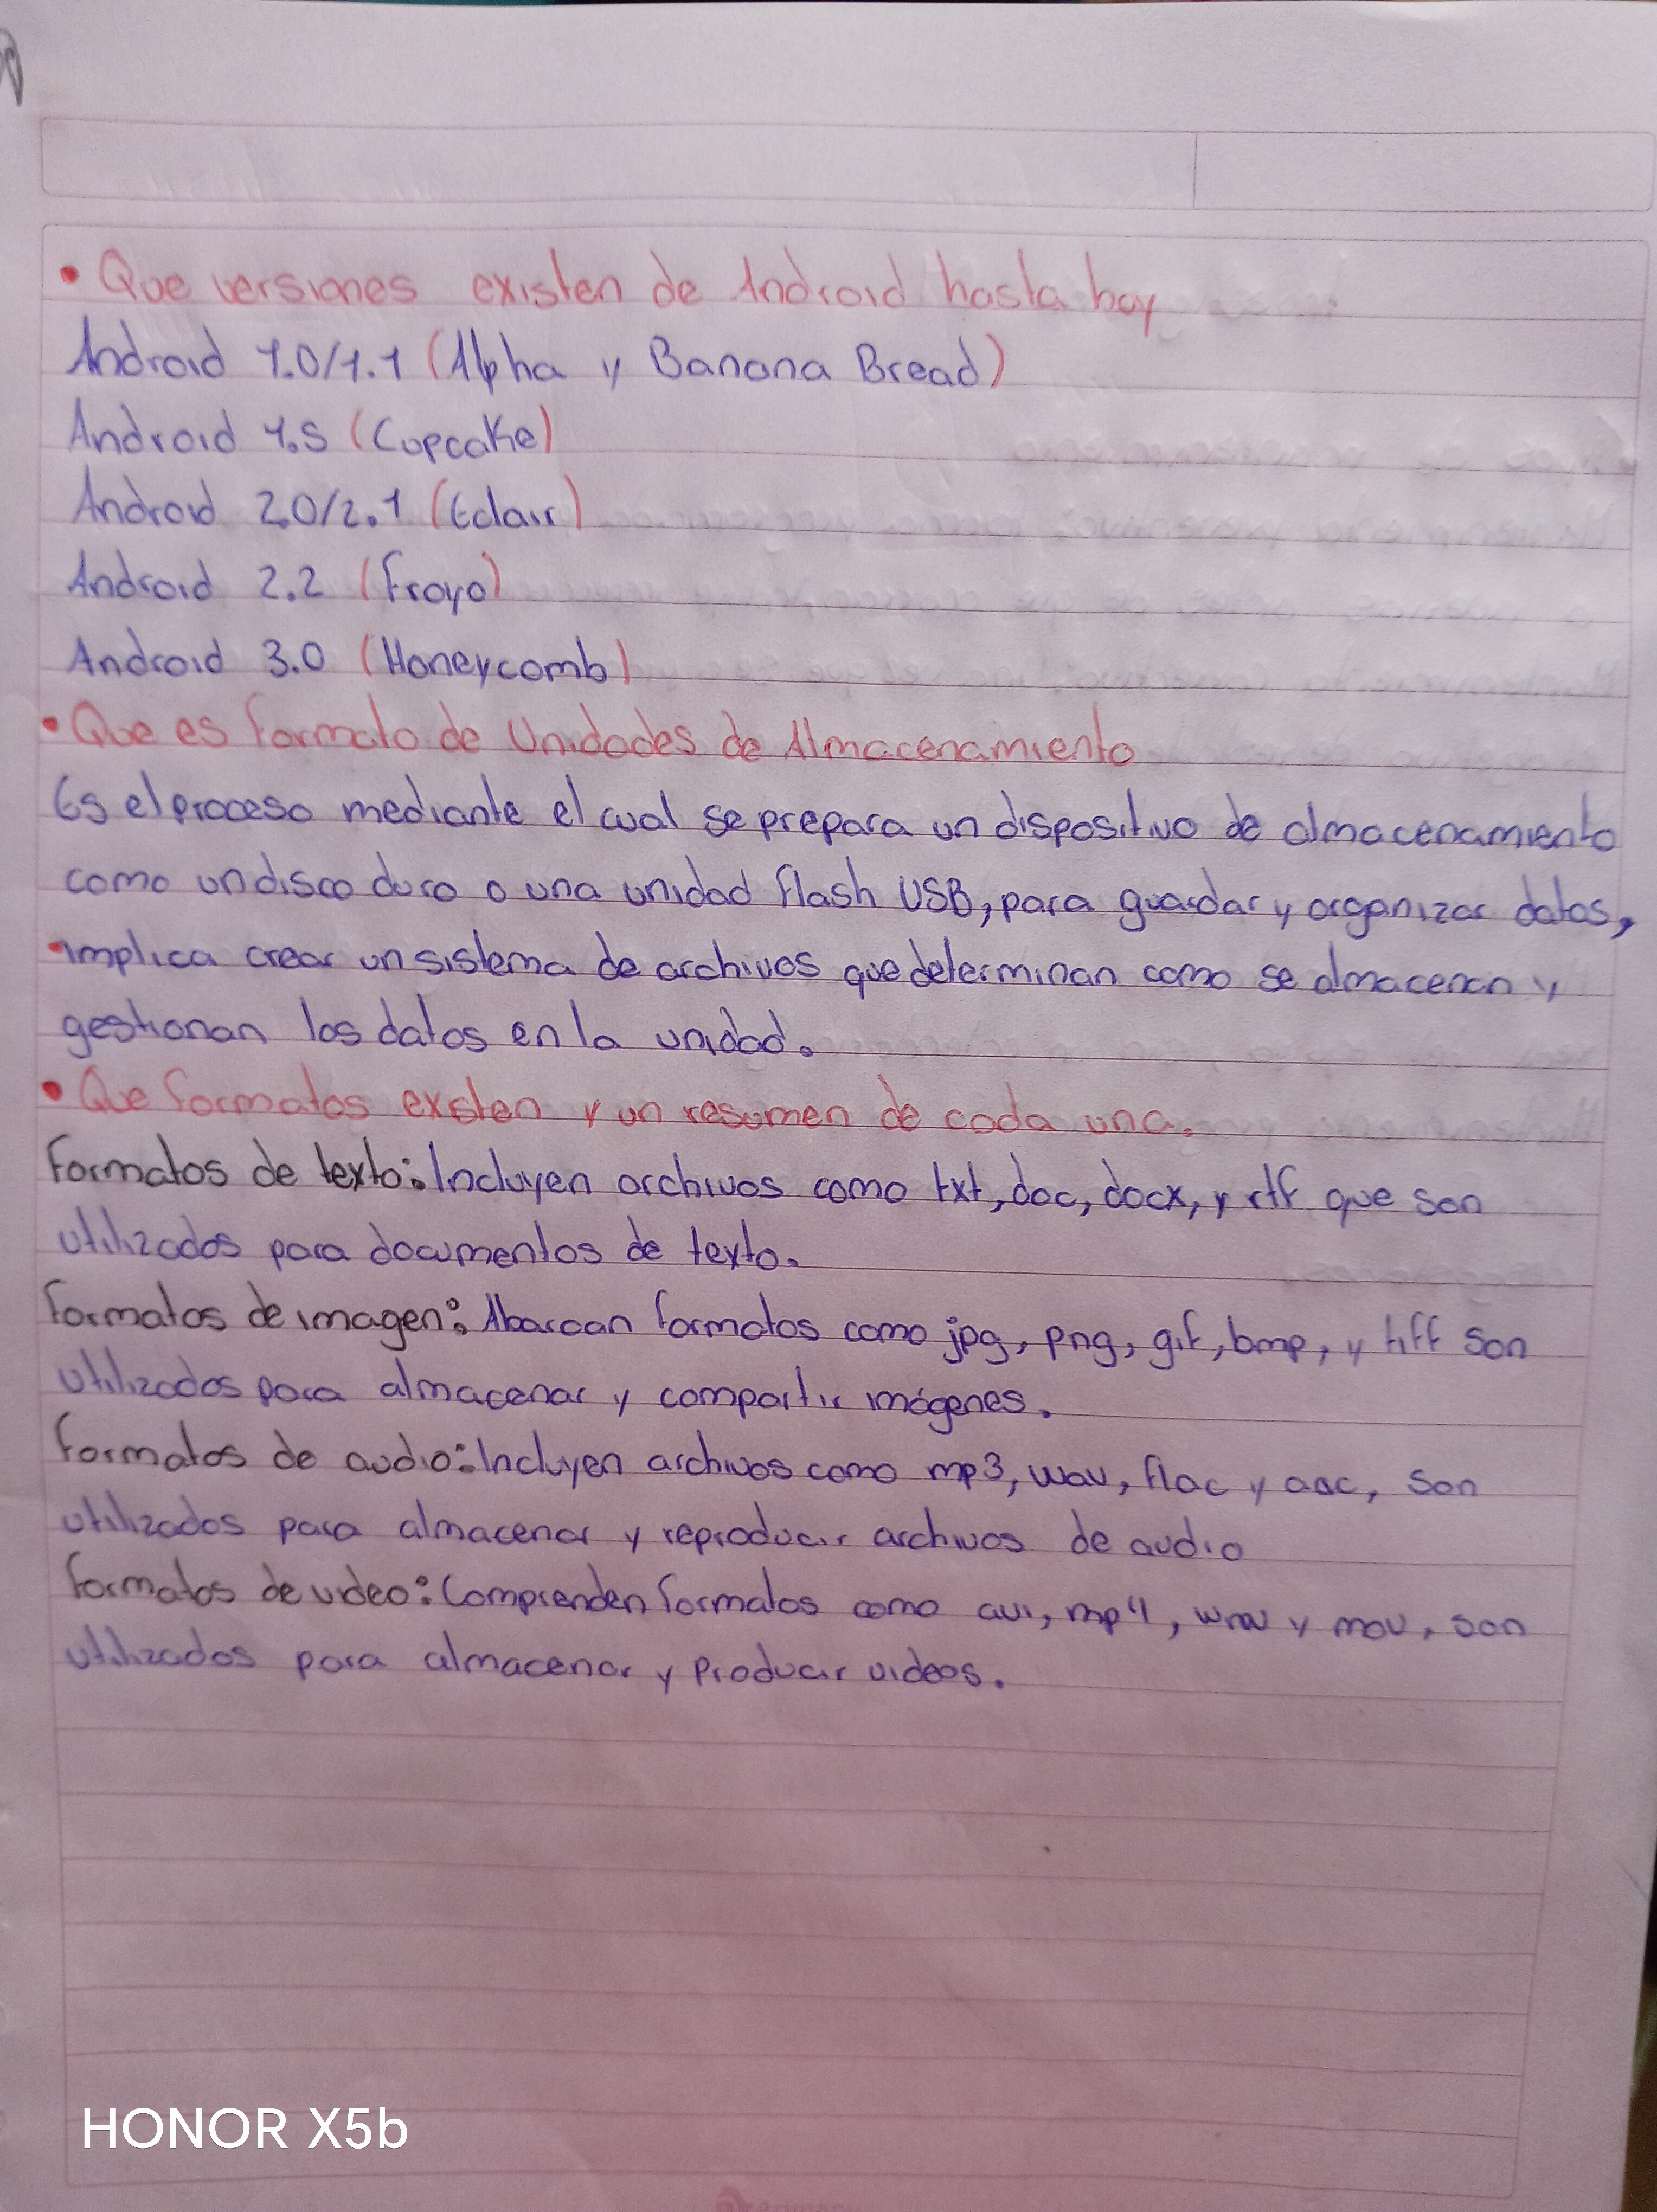 • Que versiones existen de Android hasta hoy
Android 1.0/1.1 (Alpha y Banana Bread)
Android 1.5 (Cupcake)
Android 2.0/2.1 (Eclair)
Android 2.2 (Froyo)
Android 3.0 (Honeycomb)
• Que es formato de Unidades de Almacenamiento
Es el proceso mediante el cual se prepara un dispositivo de almacenamiento
como un disco duro o una unidad flash USB, para guardar y organizar datos,
implica crear un sistema de archivos que determinan como se almacenan y
gestionan los datos en la unidad.
• Que formatos existen y un resumen de cada una.
Formatos de texto: Incluyen archivos como txt, doc, docx, y rtf que son
utilizados para documentos de texto.
Formatos de imagen: Abarcan formatos como jpg, png, gif, bmp, y tiff son
utilizados para almacenar y compartir imágenes.
Formatos de audio: Incluyen archivos como mp3, wav, flac y aac, son
utilizados para almacenar y reproducir archivos de audio
Formatos de video: Comprenden formatos como avi, mp4, wmv y mov, son
utilizados para almacenar y producir videos.
HONOR X5b